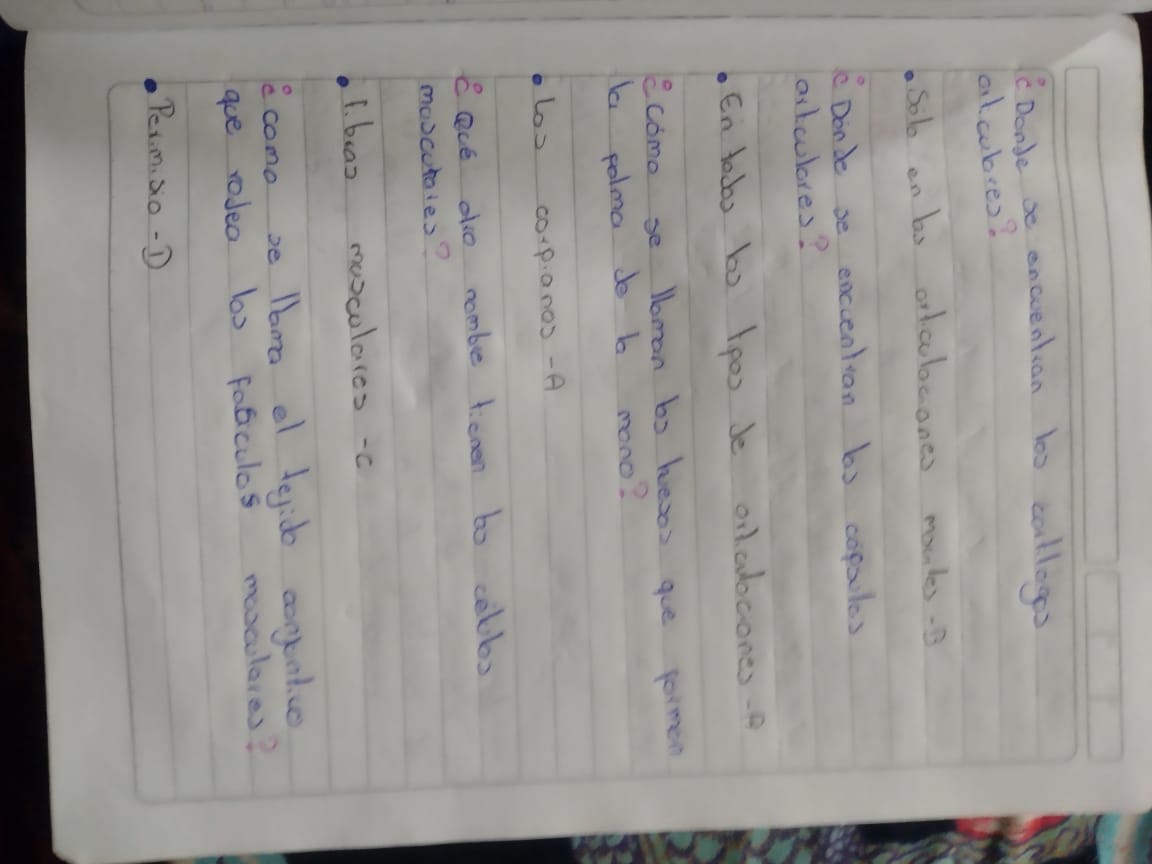 ¿Dónde se encuentran los cartílagos
articulares?
• Solo en las articulaciones moviles -B
¿Dónde se encuentran las cápsulas
articulares?
• En todos los tipos de articulaciones -A
¿Cómo se llaman los huesos que formen
la palma de la mano?
• Los carpianos -A
¿Qué otro nombre tienen las células
musculares?
• fibras musculares -C
¿como se llama el tejido conjuntivo
que rodea los fasiculos musculares?
• Perimisio -D